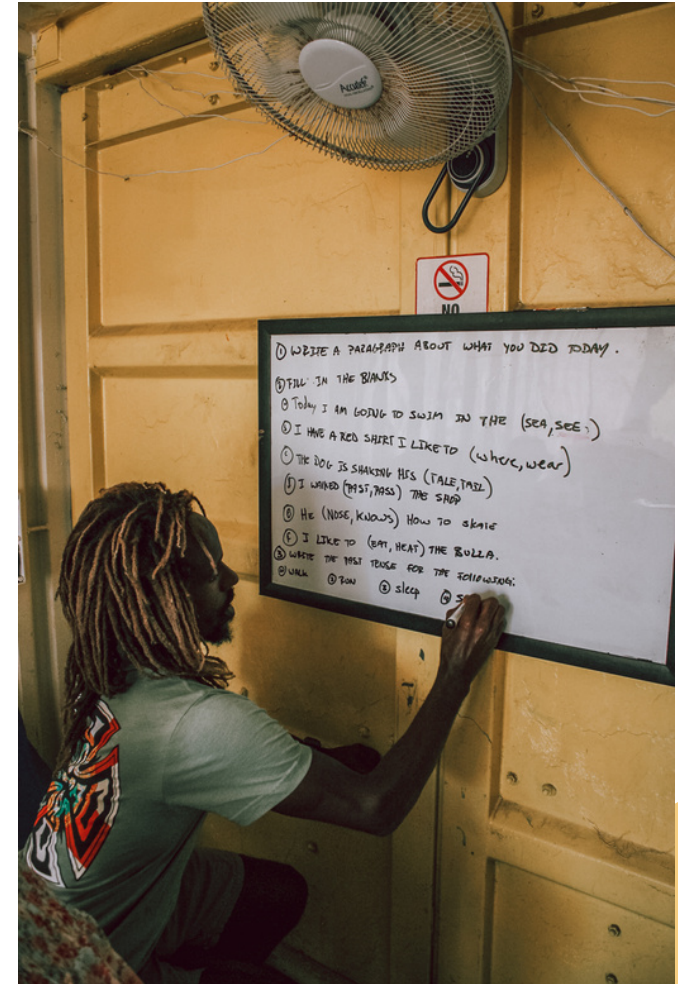 Accusonic
NO
① WRITE A PARAGRAPH ABOUT WHAT YOU DID TODAY.
② FILL IN THE BLANKS
ⓐ Today I AM GOING TO SWIM IN THE (SEA, SEE)
ⓑ I HAVE A RED SHIRT I LIKE TO (where, wear)
ⓒ THE DOG IS SHAKING HIS (TALE, TAIL)
ⓓ I WALKED (PAST, PASS) THE SHOP
ⓔ HE (NOSE, KNOWS) HOW TO SKATE
ⓕ I LIKE TO (EAT, HEAT) THE BULLA.
③ WRITE THE PAST TENSE FOR THE FOLLOWING:
① WALK ② RUN ③ sleep ④ S